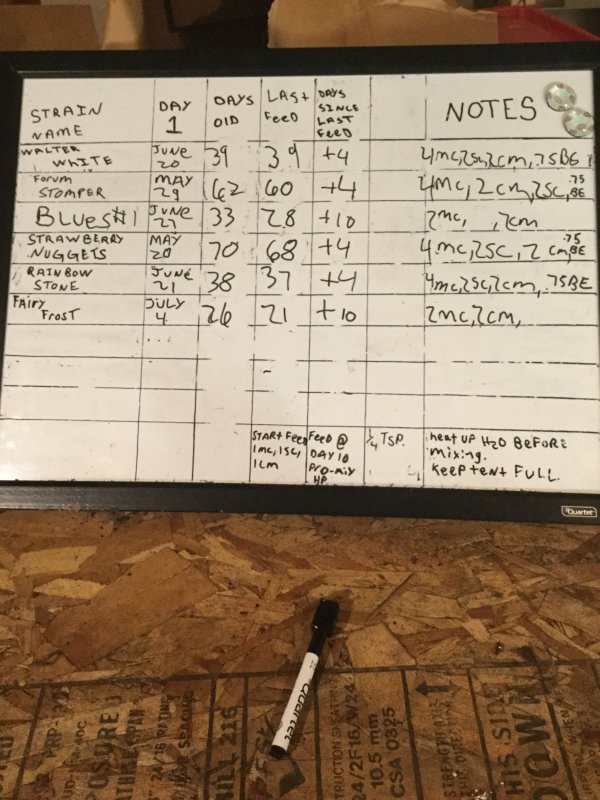 STRAIN NAME DAY 1 DAYS OLD LAST FEED DAYS SINCE LAST FEED NOTES
WALTER WHITE JUNE 20 39 39 +4 4mc, 2sc, 2cm, .75BE
Forum STOMPER MAY 29 62 60 +4 4mc, 2cm, 2sc, .75 BE
BLUES#1 JUNE 27 33 28 +10 2mc, , 2cm
STRAWBERRY NUGGETS MAY 20 70 68 +4 4mc, 2sc, 2cm, .75 BE
RAINBOW STONE JUNE 21 38 37 +4 4mc, 2sc, 2cm, .75BE
FAIRY FROST JULY 4 26 21 +10 2mc, 2cm,
START FEED 1mc, 1sc, 1cm
FEED @ DAY 10 PRO-MIX HP
1/4 TSP.
heat UP H2O BEFORE
mixing.
KEEP tent FULL.
Quartet
Quartet
24/16
HILL 216
CONSTRUCTION
24/2F16/W24
10.5 mm
CSA 0325
STRENGTH
THIS SIDE
DOWN